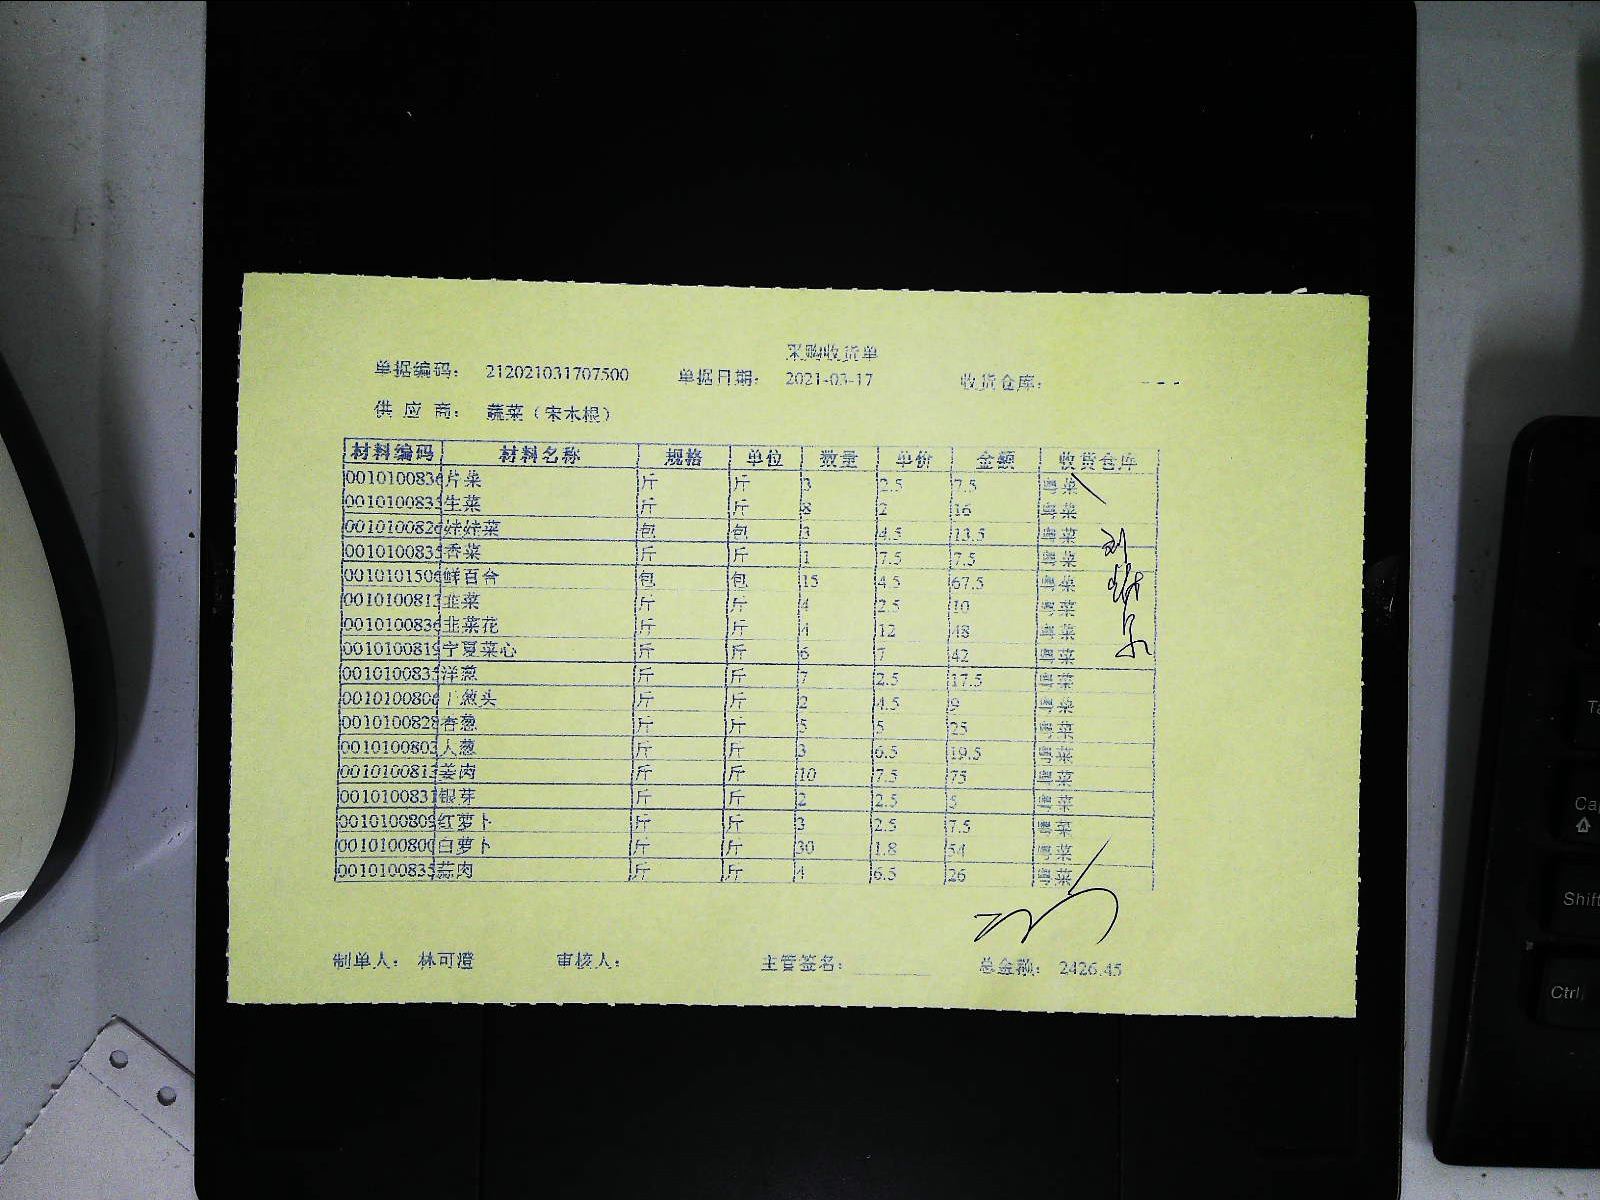 采购收货单
单据编码： 212021031707500 单据日期： 2021-03-17 收货仓库： ---
供 应 商： 蔬菜（宋木根）
材料编码 材料名称 规格 单位 数量 单价 金额 收货仓库
0010100836 芹菜 斤 斤 3 2.5 7.5 粤菜
0010100835 生菜 斤 斤 8 2 16 粤菜
0010100826 娃娃菜 包 包 3 4.5 13.5 粤菜
0010100835 香菜 斤 斤 1 7.5 7.5 粤菜
0010101506 鲜百合 包 包 15 4.5 67.5 粤菜
0010100813 韭菜 斤 斤 4 2.5 10 粤菜
0010100836 韭菜花 斤 斤 4 12 48 粤菜
0010100819 宁夏菜心 斤 斤 6 7 42 粤菜
0010100835 洋葱 斤 斤 7 2.5 17.5 粤菜
0010100806 干葱头 斤 斤 2 4.5 9 粤菜
0010100828 香葱 斤 斤 5 5 25 粤菜
0010100803 大葱 斤 斤 3 6.5 19.5 粤菜
0010100813 姜肉 斤 斤 10 7.5 75 粤菜
0010100831 银芽 斤 斤 2 2.5 5 粤菜
0010100809 红萝卜 斤 斤 3 2.5 7.5 粤菜
0010100800 白萝卜 斤 斤 30 1.8 54 粤菜
0010100835 蒜肉 斤 斤 4 6.5 26 粤菜
制单人： 林可澄 审核人： 主管签名： 总金额： 2426.45
Shift
Ctrl